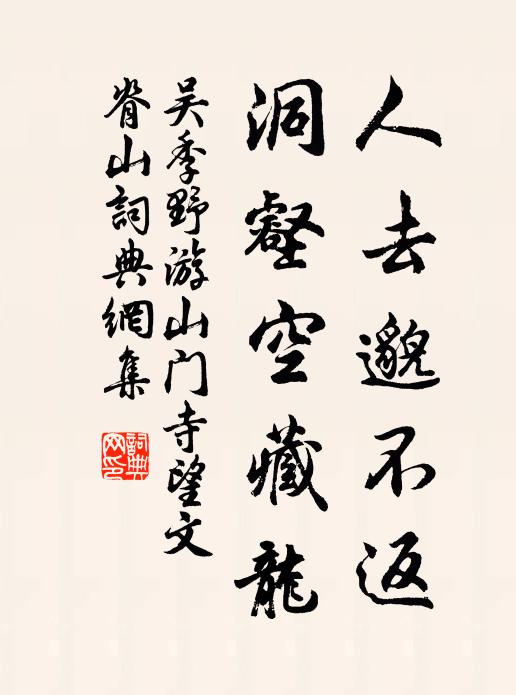 人去邈不返
洞壑空藏龍
吴季野游山门寺望文
脊山詞典網集
詞典網印